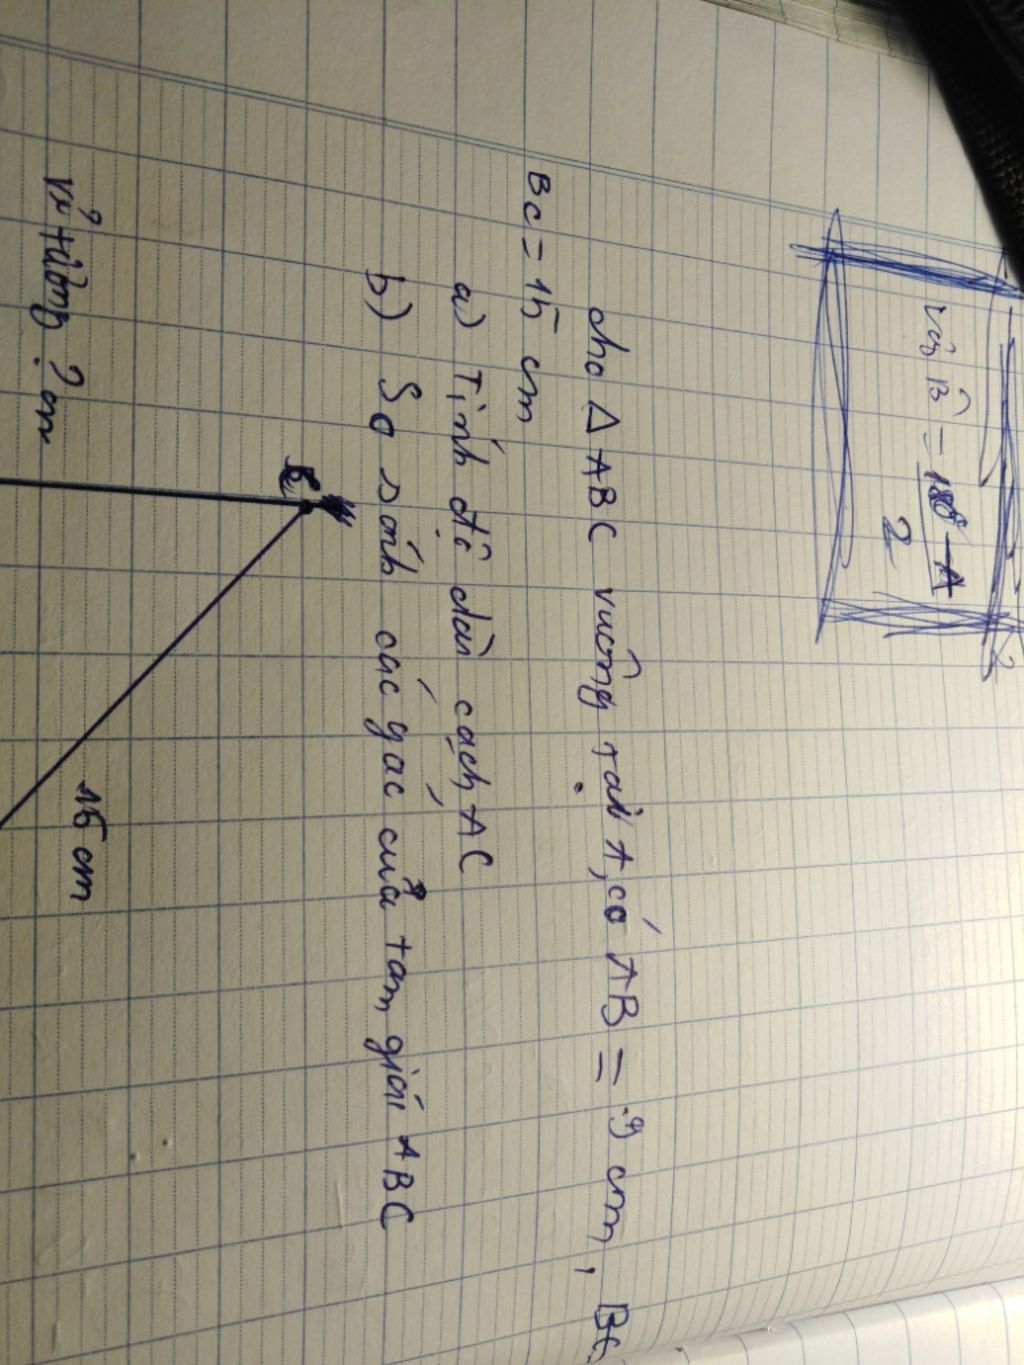 với B̂ = 180° - A
2
cho Δ ABC vuông tại A, có AB = 9 cm, BC
BC = 15 cm
a) Tính độ dài cạch AC
b) So sánh các góc của tam giác ABC
? cm
15 cm